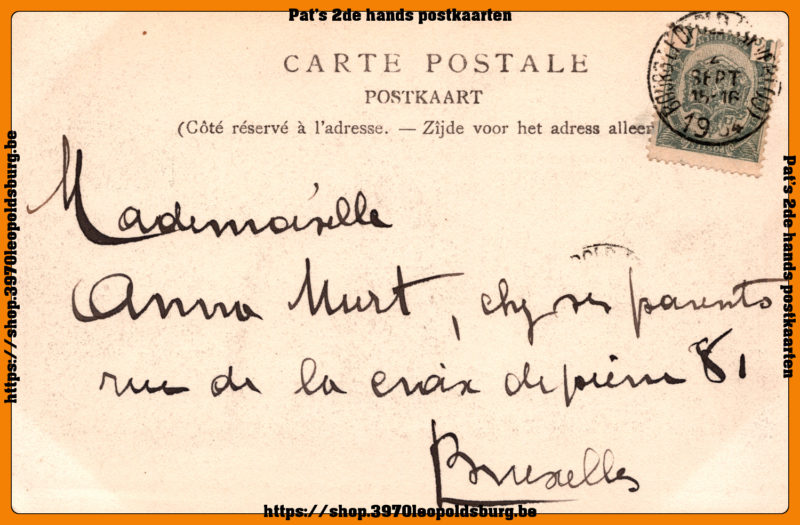 Pat's 2de hands postkaarten
CARTE POSTALE
POSTKAART
(Côté réservé à l'adresse. — Zijde voor het adress alleen
BOURG-LEOPOLD
2
SEPT
15-16
1904
Mademoiselle
Anna Murt, chez ses parents
rue de la croix de pierre 81
Bruxelles
https://shop.3970leopoldsburg.be
https://shop.3970leopoldsburg.be
Pat's 2de hands postkaarten